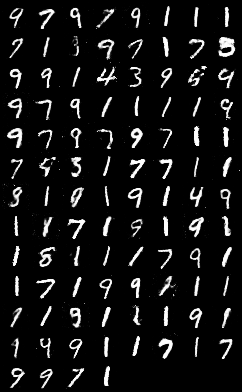 9 7 9 7 9 1 1 1
7 1 3 9 7 1 7 3
9 9 1 4 3 9 5 9
9 7 9 1 1 1 1 9
9 7 9 7 9 7 1 1
7 5 3 1 7 7 1 1
3 1 1 9 1 4 9
1 1 7 1 9 1 9 1
1 8 1 1 1 7 9 1
1 7 1 9 9 1 1
7 1 3 1 1 1 9 1
1 4 9 1 1 7 1 7
9 9 7 1